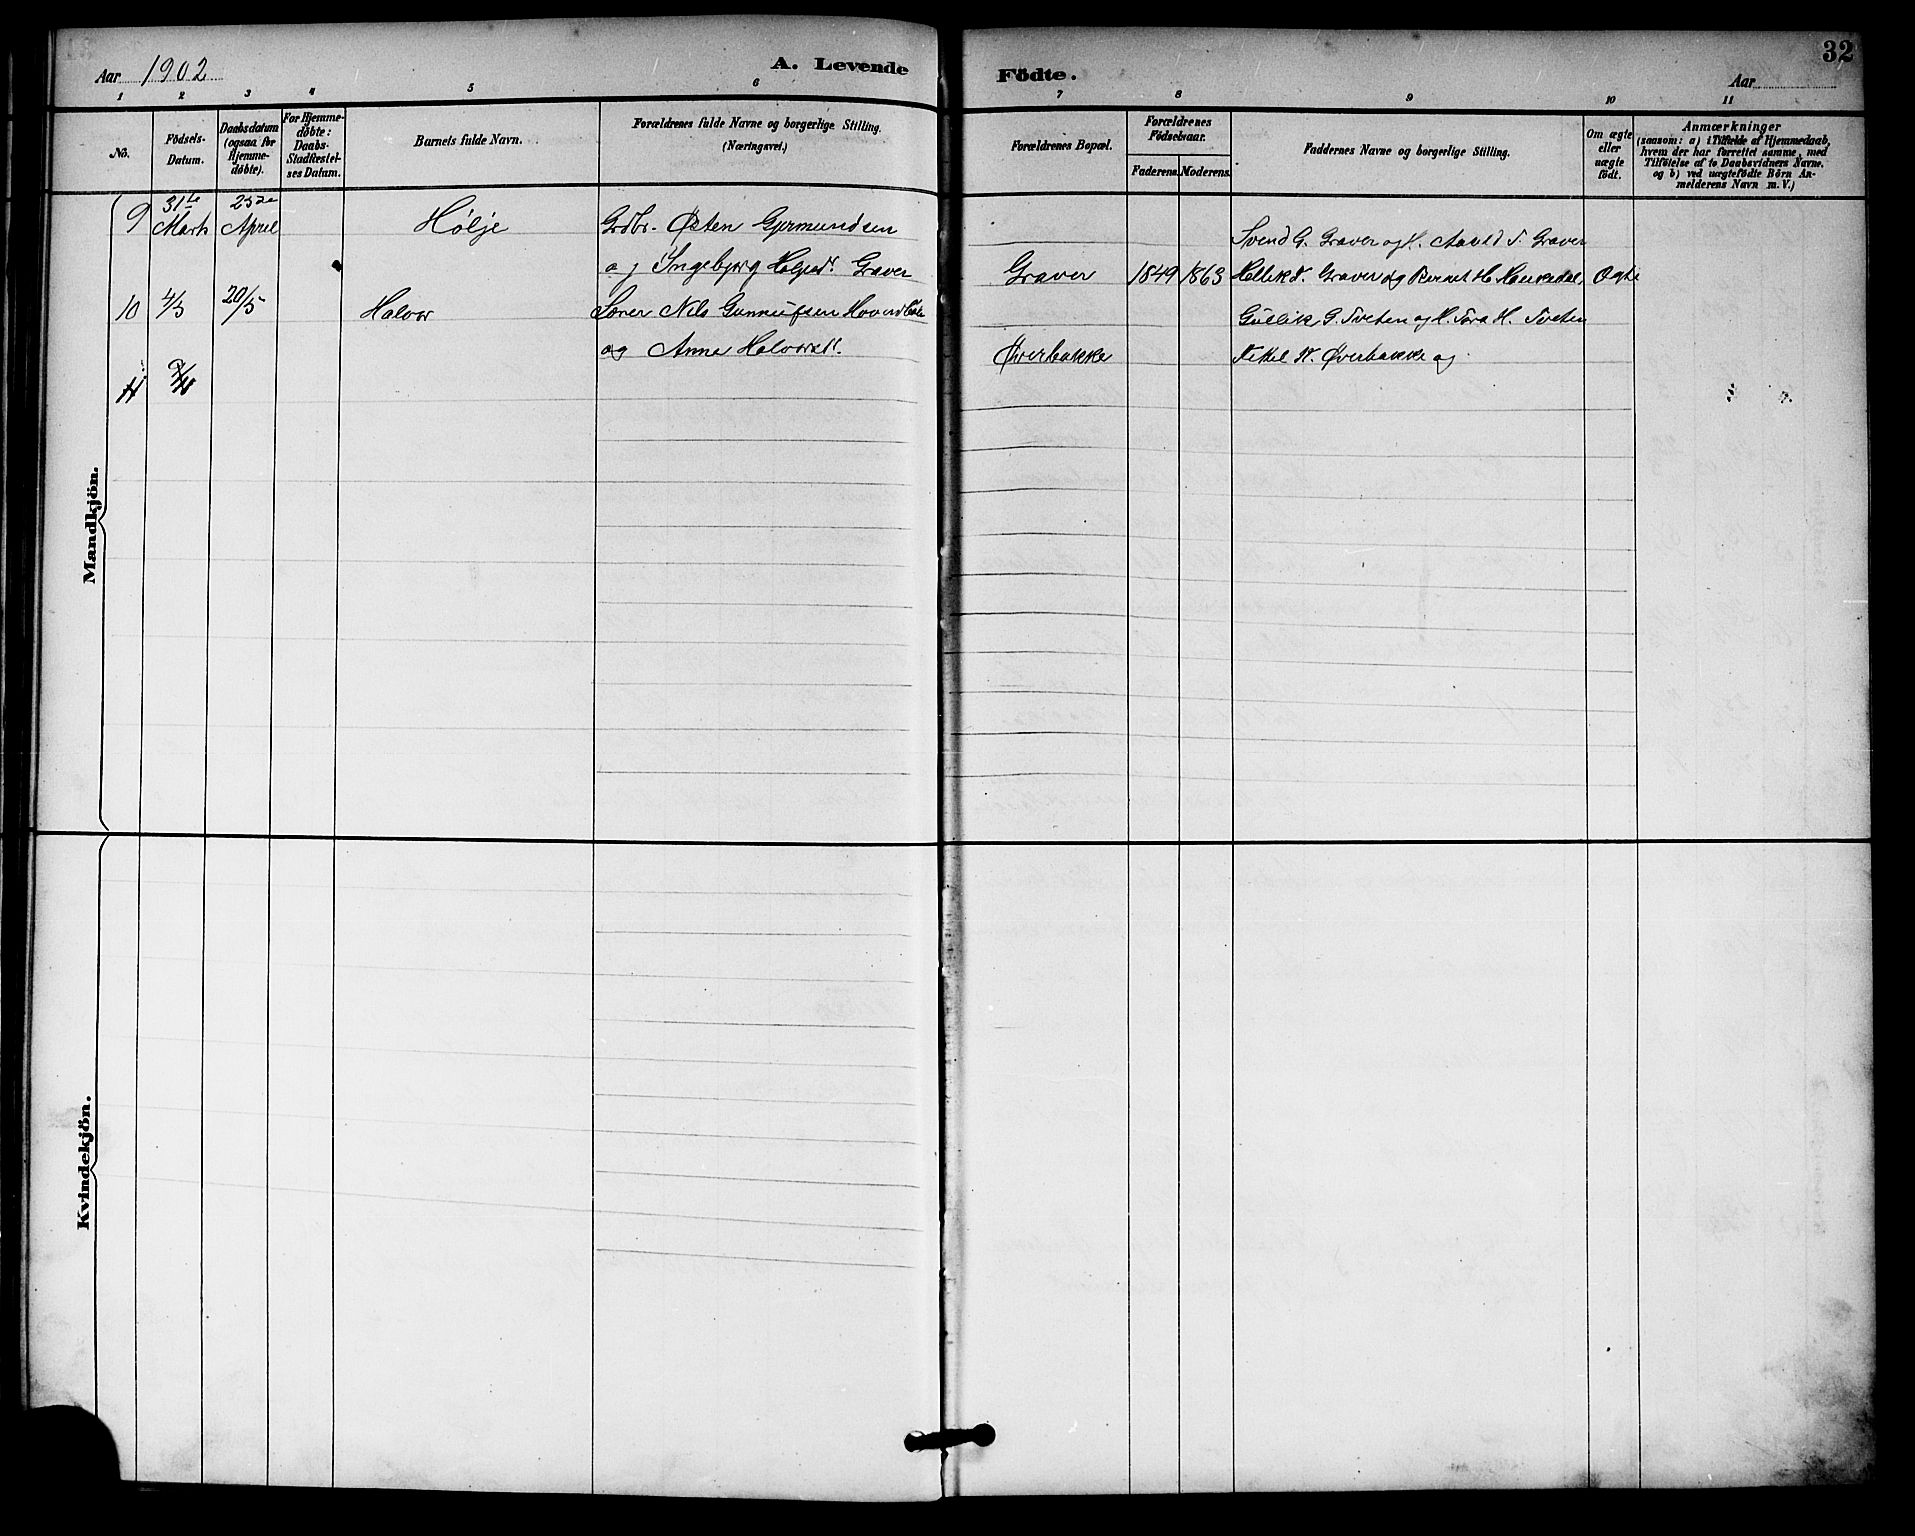 Aar 1902
A. Levende
Födte.
Aar
32
1 2 3 4 5 6 7 8 9 10 11
No.
Födsels-
Datum.
Daabsdatum
(ogsaa for
Hjemme-
döbte).
For Hjemme-
döbte:
Daabs-
Stadfæstel-
ses Datum.
Barnets fulde Navn.
Forældrenes fulde Navne og borgerlige Stilling.
(Næringsvei.)
Forældrenes Bopæl.
Forældrenes
Födselsaar.
Faderens. Moderens.
Faddernes Navne og borgerlige Stilling.
Om ægte
eller
uægte
födt.
Anmærkninger
(saasom: a) i Tilfælde af Hjemmedaab,
hvem der har forrettet samme, med
Tilföielse af to Daabsvidners Navne,
og b) ved uægtefödte Börn An-
melderens Navn m. V.)
Mandkjön.
9 31te Marts 25de April Hølje Grdbr. Østen Gjermundsen
og Ingebjørg Høljesd. Graver
Graver 1849 1863
Svend G. Graver og H. Aavld S. Graver
Hellik Graver og Bernt H. Ægte
10 4/3 20/5 Halvor Nils Gunnufsen
og Anna Halvorsd.
Øverbakke
Gullik G. Tveten og H. Tora H. Tveten
Kekel N. Øverbakke og
11
Kvindekjön.